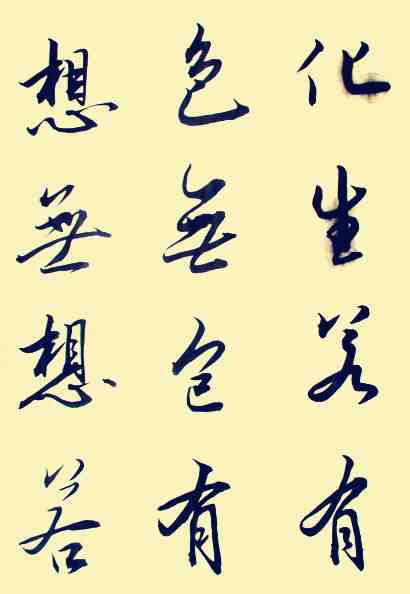 化生若有
色無色有
想無想若